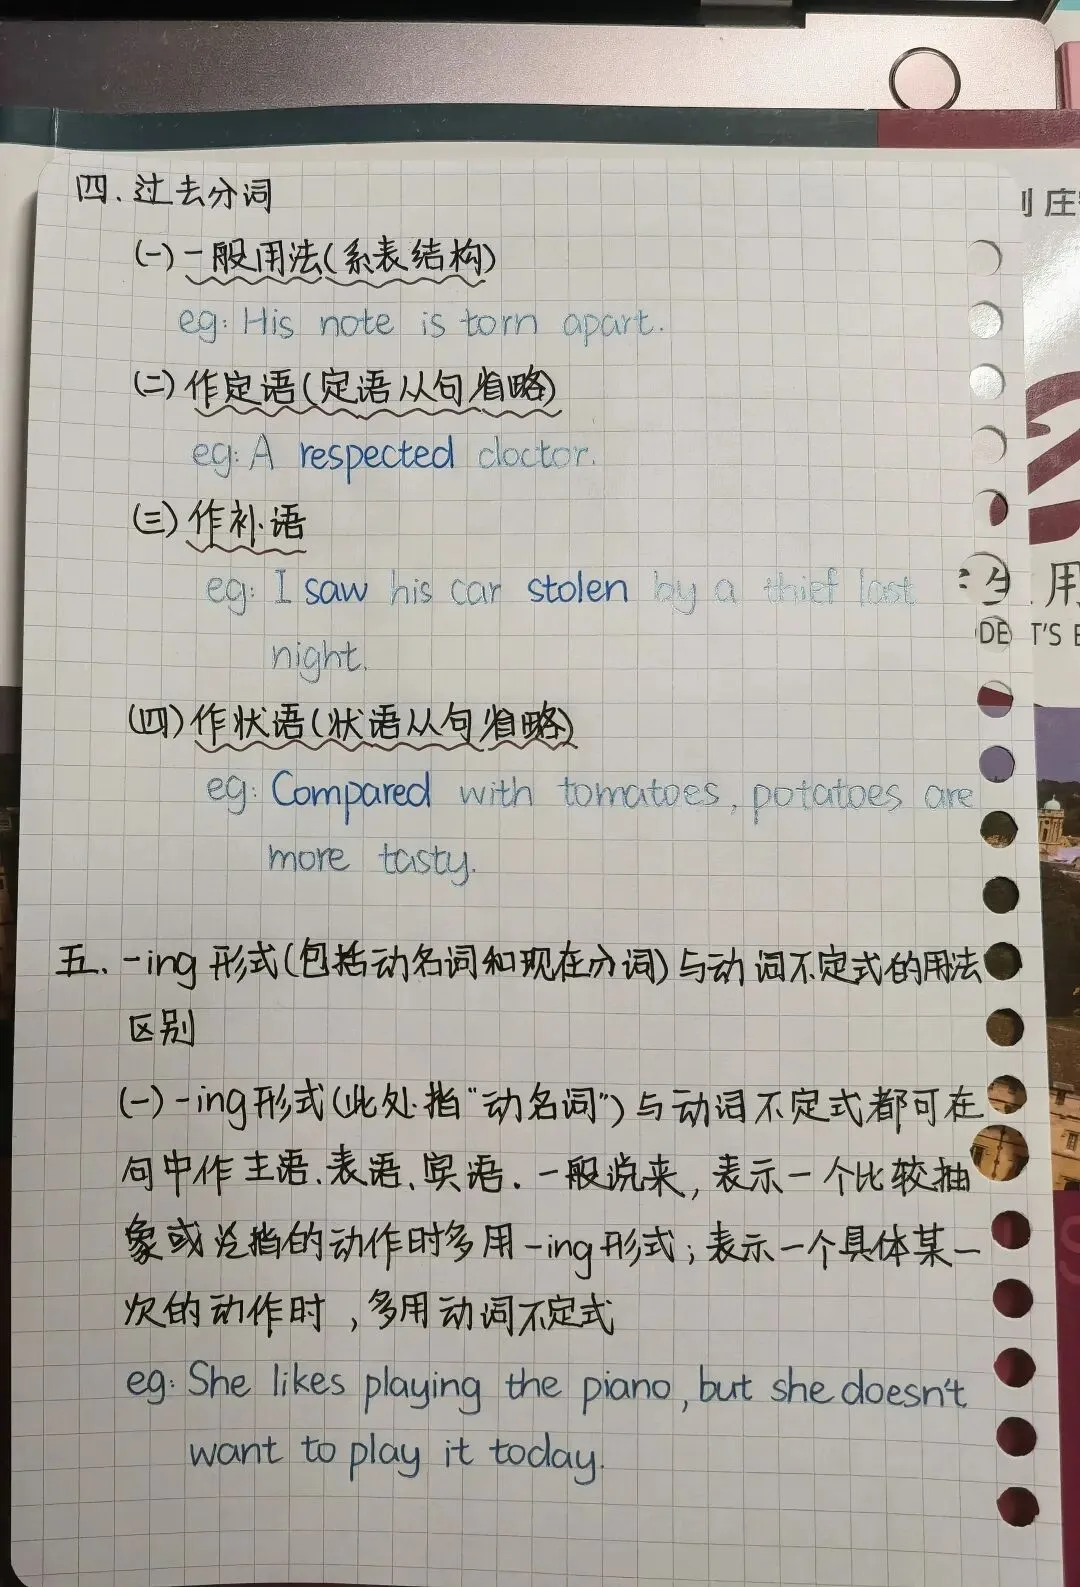 四. 过去分词
(一) 一般用法(系表结构)
eg: His note is torn apart.
(二) 作定语(定语从句省略)
eg: A respected doctor.
(三) 作补语
eg: I saw his car stolen by a thief last
night.
(四) 作状语(状语从句省略)
eg: Compared with tomatoes, potatoes are
more tasty.
五. -ing 形式(包括动名词和现在分词)与动词不定式的用法
区别
(一) -ing形式(此处指“动名词”)与动词不定式都可在
句中作主语、表语、宾语. 一般说来, 表示一个比较抽
象或 的动作时多用-ing形式; 表示一个具体某一
次的动作时, 多用动词不定式
eg: She likes playing the piano, but she doesn't
want to play it today.
用
DE T'S